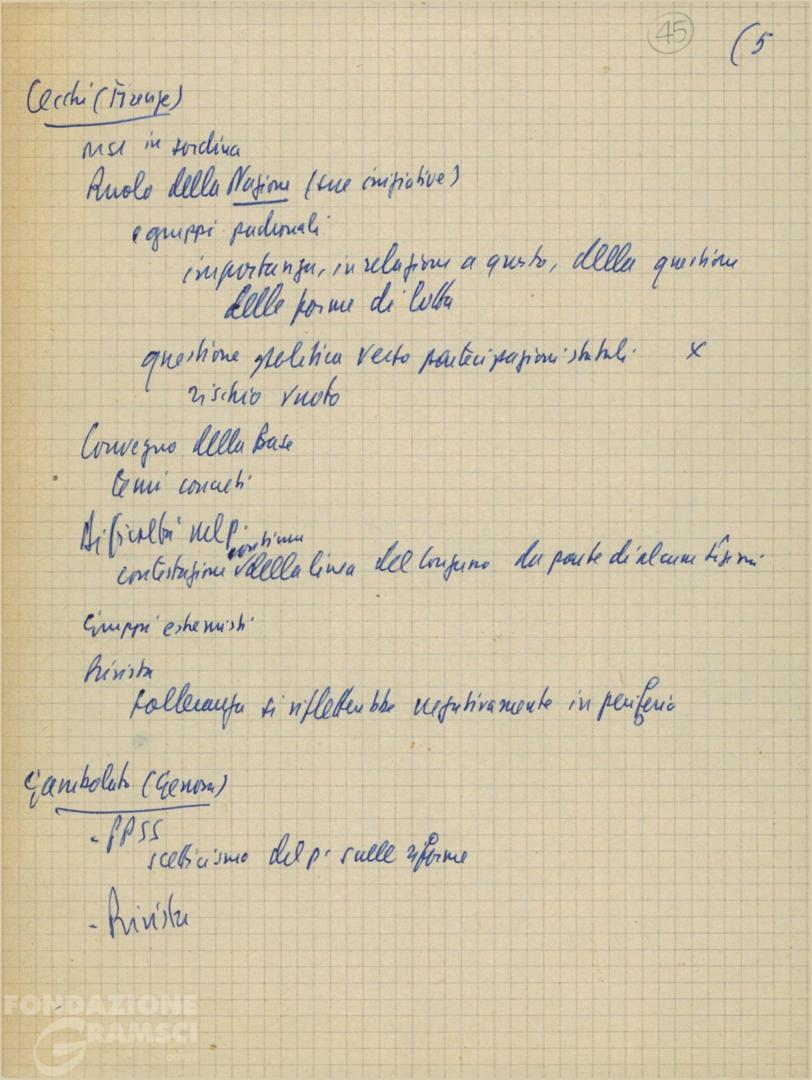 45
(5
Cecchi (Firenze)
MSI in sordina
Ruolo della Nazione (sue iniziative)
e gruppi padronali
importanza, in relazione a questo, della questione
delle forme di lotta
questione politica verso partecipazioni statali x
rischio vuoto
Convegno della Base
temi concreti
difficoltà nel p.
continua
contestazione della linea del Congresso da parte di alcune
Gruppi estremisti
Rivista
tolleranza si rifletterebbe negativamente in periferia
Gambolato (Genova)
- PPSS
scetticismo del p. sulle riforme
- Rivista
FONDAZIONE
GRAMSCI
onlus